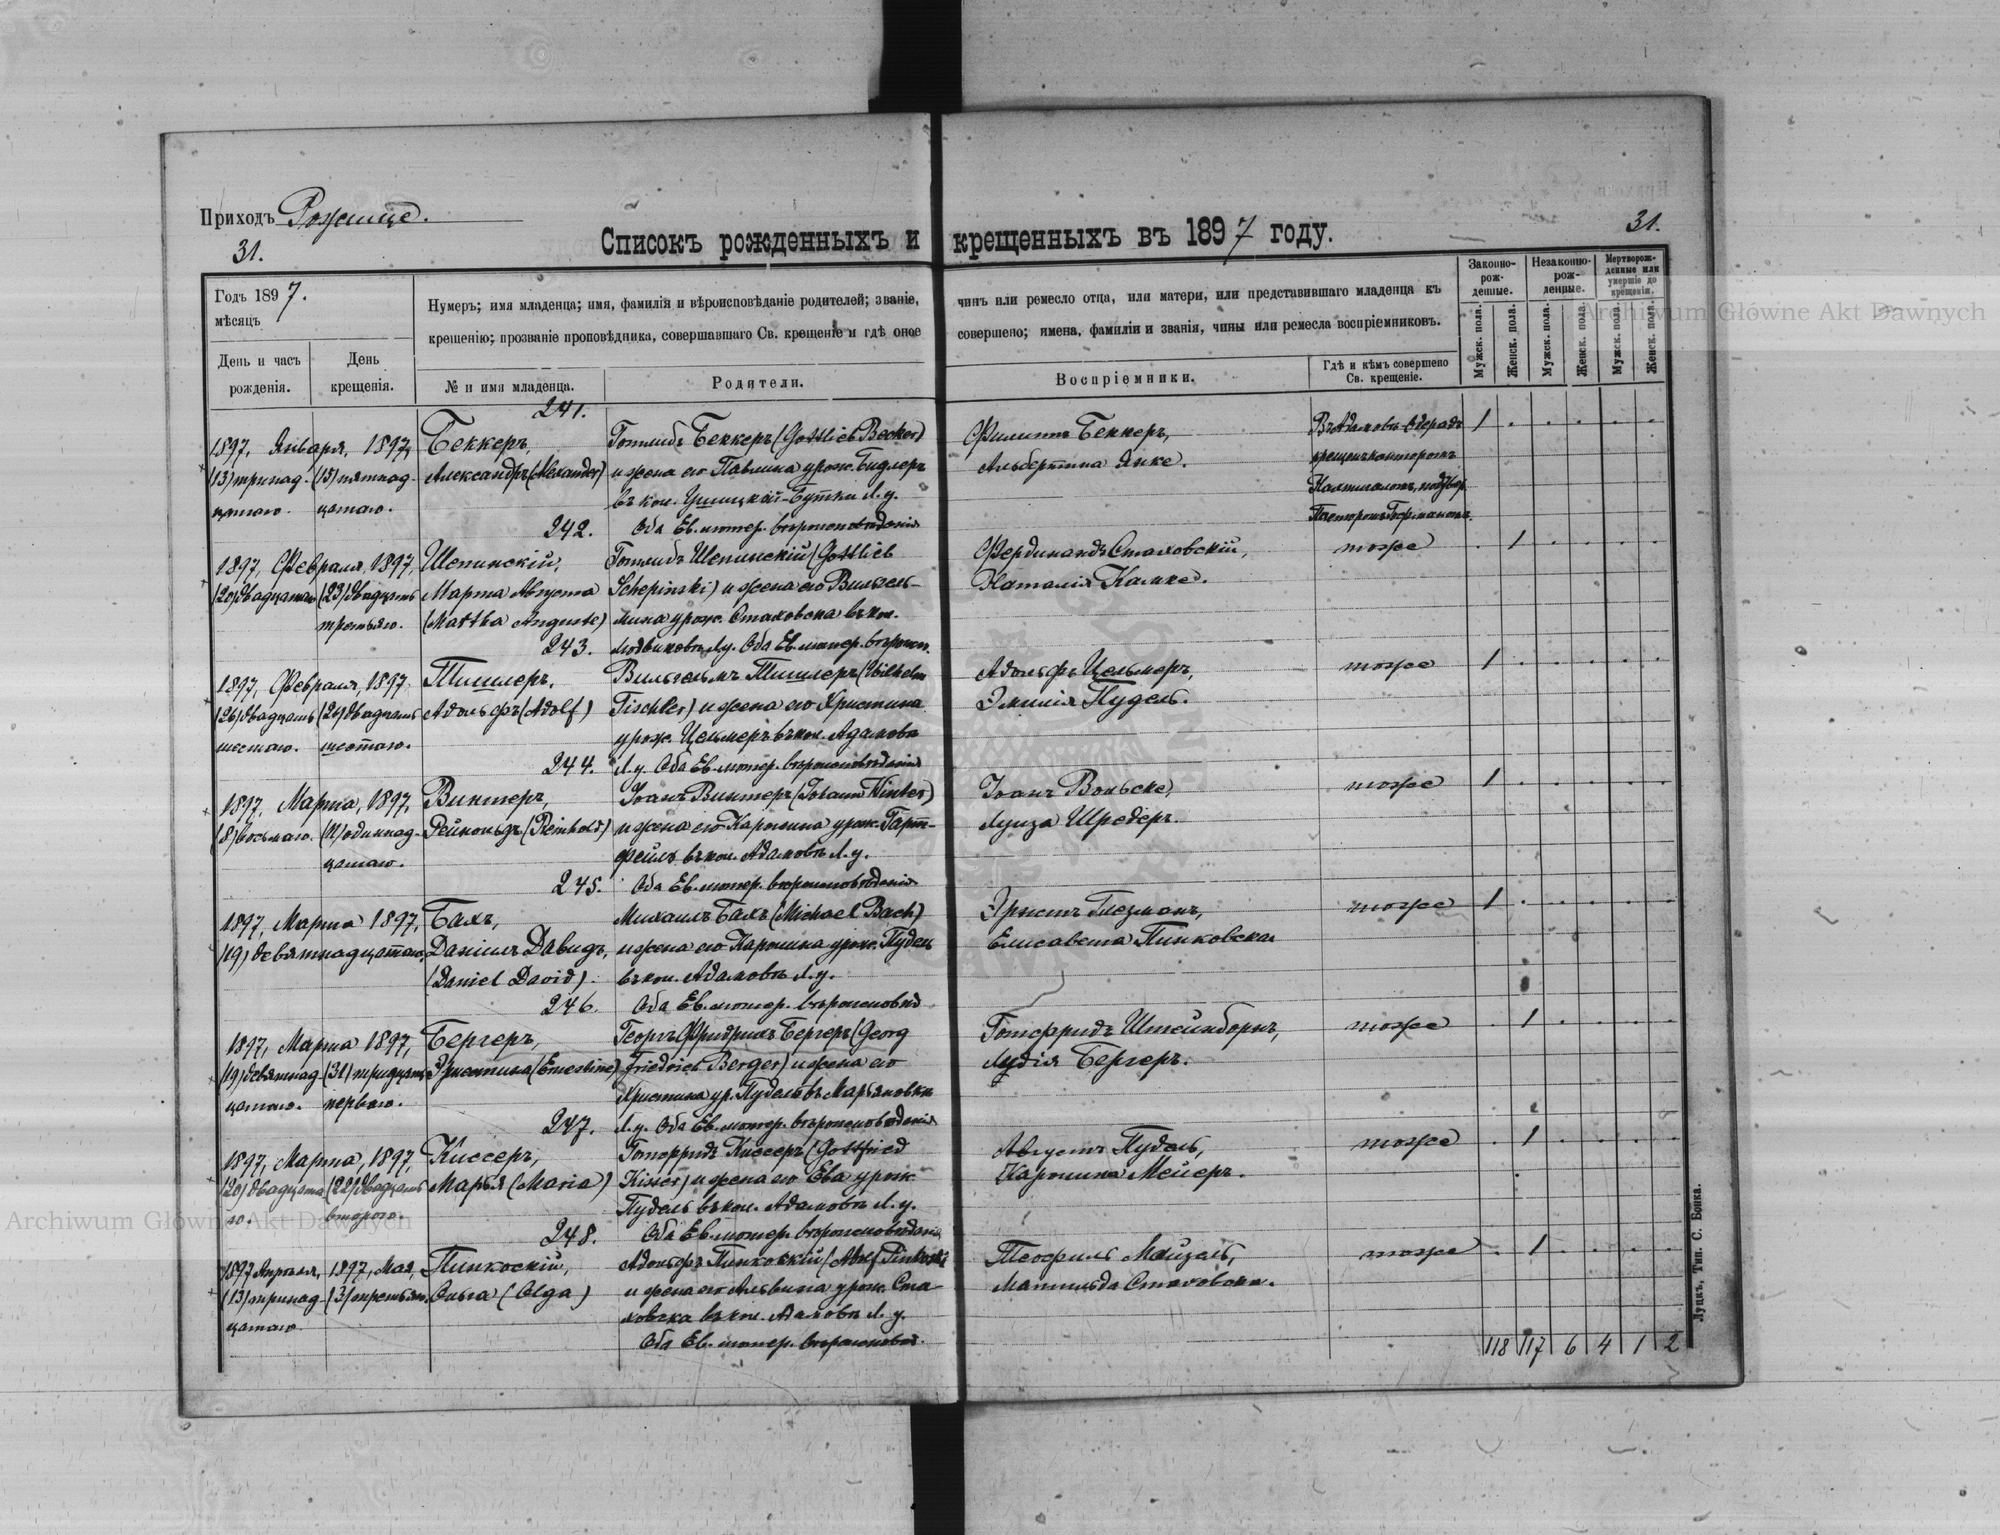 Приходъ Рожище.
31.
31.
Списокъ рожденныхъ и крещенныхъ въ 1897 году.
Годъ 1897.
мѣсяцъ
День и часъ рожденія.
День крещенія.
Нумеръ; имя младенца; имя, фамилія и вѣроисповѣданіе родителей; званіе, чинъ или ремесло отца, или матери, или представившаго младенца къ
крещенію; прозваніе проповѣдника, совершавшаго Св. крещеніе и гдѣ оное совершено; имена, фамиліи и званія, чины или ремесла воспріемниковъ.
№ и имя младенца.
Родители.
Воспріемники.
Гдѣ и кѣмъ совершено Св. крещеніе.
Законно-рож-денные.
Незаконно-рож-денные.
Мертворож-денные или умершіе до крещенія.
Мужск. пола.
Женск. пола.
Мужск. пола.
Женск. пола.
Мужск. пола.
Женск. пола.
241.
1897, Января, 1897,
(13) тринад- (15) пятнад-
цатаго. цатаго.
Беккеръ,
Александръ (Alexander)
Готлибъ Беккеръ (Gottlieb Becker)
и жена его Павлина урож. Бидлеръ
въ кол. Л. у.
Оба Ев. лютер. вѣроисповѣданія
Филиппъ Беккеръ,
Альбертина Янке.
1
242.
1897, Февраля, 1897,
(20) двадцатаго (23) двадцать
третьяго.
Шепинскій,
Марта Августа
(Martha Auguste)
Готлибъ Шепинскій (Gottlieb
Schepinski) и жена его Вильгель-
мина урож. Стаховска въ кол.
Л. у. Оба Ев. лютер. вѣроисп.
Фердинандъ Стаховскій,
Наталія
тоже
1
243.
1897, Февраля, 1897.
(26) двадцать (26) двадцать
шестаго. шестаго.
Тишлеръ,
Адольфъ (Adolf)
Вильгельмъ Тишлеръ (Wilhelm
Tischler) и жена его Христина
урож. Цельмеръ въ кол. Адамовъ
Л. у. Оба Ев. лютер. вѣроисповѣданія
Адольфъ Цельмеръ,
Эмилія Пудель.
тоже
1
244.
1897, Марта, 1897,
(8) восьмаго. (11) одиннад-
цатаго.
Винтеръ,
Рейнольдъ (Reinhold)
Іоанъ Винтеръ (Johann Winter)
и жена его Каролина урож. Гарт-
фейль въ кол. Адамовъ Л. у.
Оба Ев. лютер. вѣроисповѣданія
Іоанъ Вольске,
Луиза Шредеръ.
тоже
1
245.
1897, Марта 1897,
(19) девятнадцатаго.
Бахъ,
Даніилъ Давидъ,
(Daniel David)
Михаилъ Бахъ (Michael Bach)
и жена его Каролина урож. Пудель
въ кол. Адамовъ Л. у.
Оба Ев. лютер. вѣроисповѣд
Эрнстъ Глезманъ,
Елисавета Пинковска
тоже
1
246.
1897, Марта 1897,
(19) девятнад- (31) тридцать
цатаго. перваго.
Бергеръ,
Эрнестина (Ernestine)
Георгъ Фридрихъ Бергеръ (Georg
Friedrich Berger) и жена его
Христина ур. Пудель въ Марьяновка
Л. у. Оба Ев. лютер. вѣроисповѣданія
Готфридъ Штейнборнъ,
Лудія Бергеръ.
тоже
1
247.
1897, Марта, 1897,
(20) двадцата- (22) двадцать
го. втораго.
Киссеръ,
Марья (Maria)
Готфридъ Киссеръ (Gottfried
Kisser) и жена его Ева урож.
Пудель въ кол. Адамовъ Л. у.
Оба Ев. лютер. вѣроисповѣданія
Августъ Пудель,
Каролина Мейеръ.
тоже
1
248.
1897 Апрѣля, 1897, Мая,
(13) тринад- (3) третьяго.
цатаго
Пинкоскій,
Ольга (Olga)
Адольфъ Пинковскій (Adolf Pinkoski
и жена его Альвина урож. Ста-
ховска въ кол. Адамовъ Л. у.
Оба Ев. лютер. вѣроисповѣд.
Теофиль Майзель,
Матильда Стаховска.
тоже
1
118 117 6 4 1 2
Луцкъ, Тип. С. Бонка.
Archiwum Główne Akt Dawnych
Archiwum Główne Akt Dawnych